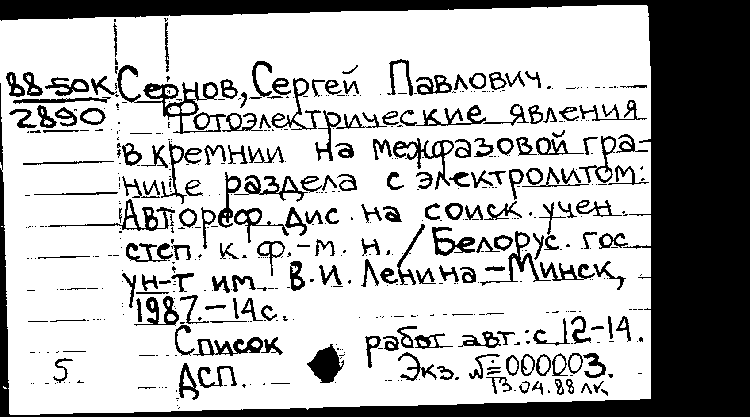 88-50К Сернов, Сергей Павлович.
2890 Фотоэлектрические явления
в кремнии на межфазовой гра-
нице раздела с электролитом:
Автореф. дис. на соиск. учен.
степ. к. ф.-м. н. / Белорус. гос
ун-т им. В.И. Ленина - Минск,
1987. - 14с.
Список работ авт.: с 12-14.
5. ДСП. Экз. №000003.
13.04.88 лк